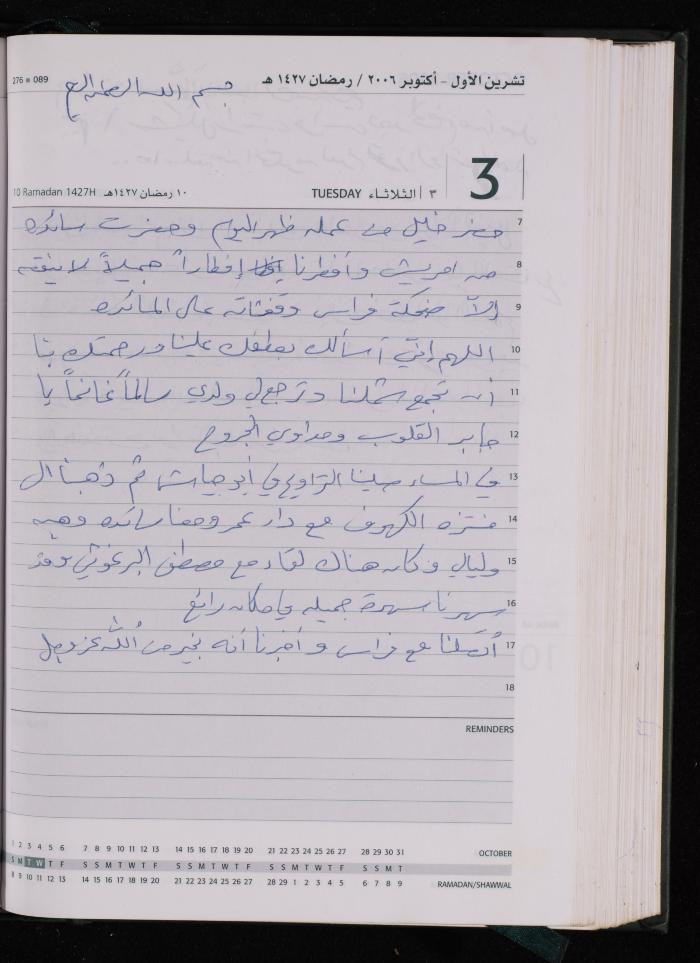 276 ■ 089
تشرين الأول - أكتوبر ٢٠٠٦ / رمضان ١٤٢٧ هـ
بسم الله الرحمن الرحيم
3
10 Ramadan 1427H
١٠ رمضان ١٤٢٧هـ
TUESDAY
٣ الثلاثاء
7 حضر خليل من عمله ظهر اليوم وحضرت سائده
8 من وأفطرنا إفطاراً جميلاً لا ينقصه
9 إلاّ ضحكة فراس وقفشاته على المائده
10 اللهم إنّي أسألك بعطفك علينا ورحمتك بنا
11 أن تجمع شملنا وترجع لي ولدي سالماً غانماً يا
12 جابر القلوب ومداوي الجروح
13 في المساء صلينا التراويح في أبو ثم ذهبنا الى
14 منتزه الكهوف مع دار عمر ومعنا سائده وهبه
15 وليالي وكان هناك لقاء مع مصطفى البرغوثي وقد
16 سهرنا سهرة جميله في مكان رائع
17 أتصلنا مع فراس وأخبرنا أنه بخير من الله عز وجل
18
REMINDERS
1 2 3 4 5 6 7 8 9 10 11 12 13 14 15 16 17 18 19 20 21 22 23 24 25 26 27 28 29 30 31 OCTOBER
S M T W T F S S M T W T F S S M T W T F S S M T W T F S S M T
8 9 10 11 12 13 14 15 16 17 18 19 20 21 22 23 24 25 26 27 28 29 1 2 3 4 5 6 7 8 9 RAMADAN/SHAWWAL